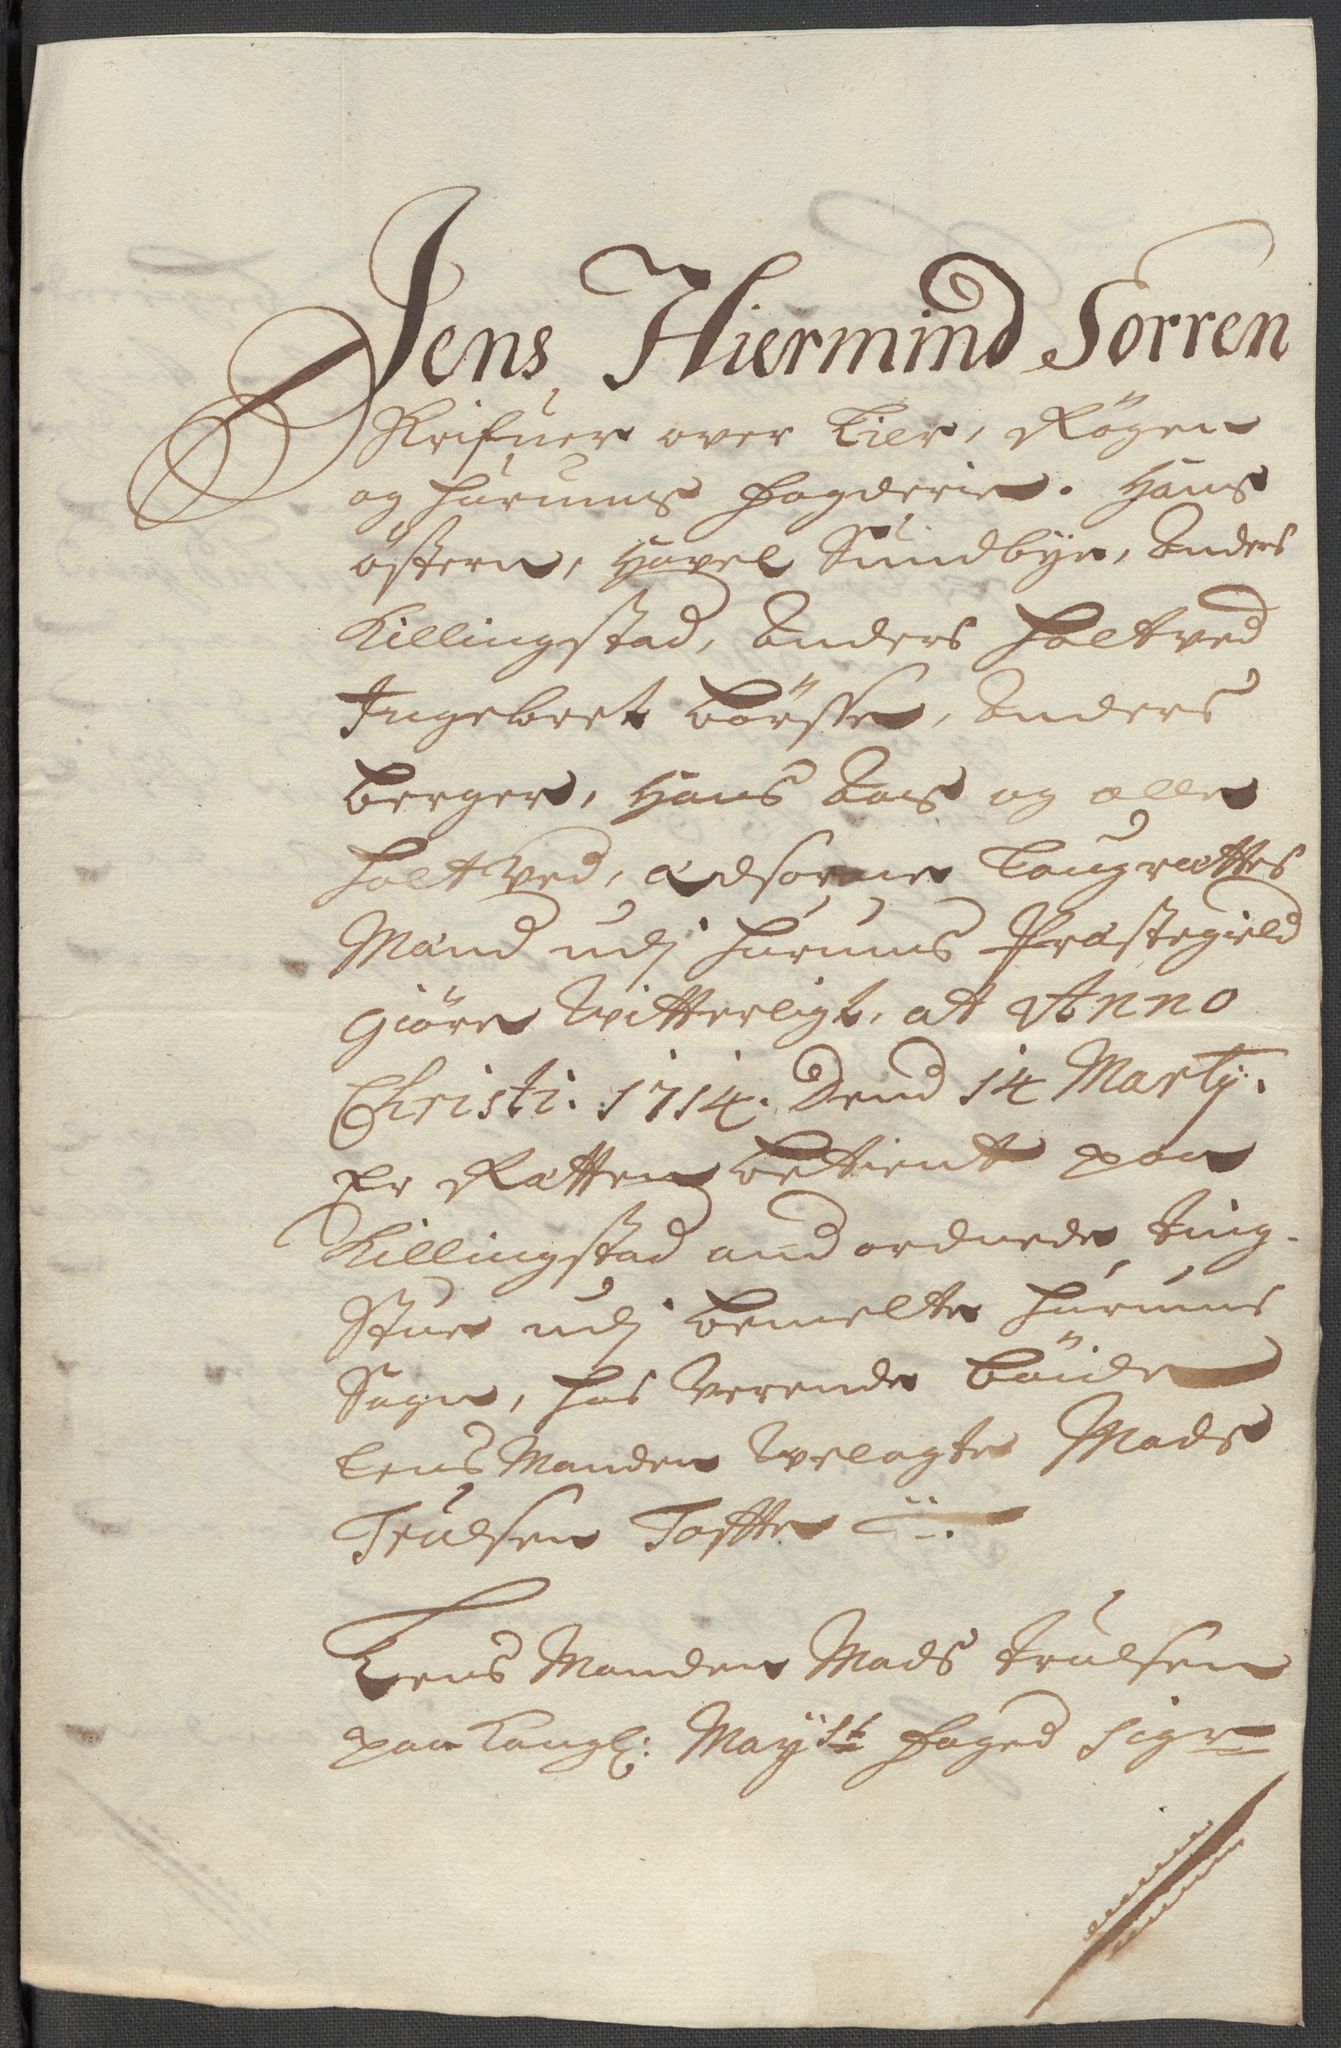 Jens Hiermind Sorren
Skrifuer over Lier, Røgen
og Hurums fogderie. Hans
østern, Hovel Sundbye, Anders
Killingstad, Anders Holtved
Ingebret Børsse, Anders
Berger, Hans Aas og olle
Holtved, Edsorne Laugrettes
Mænd udj Hurums Præstegield
Giøre Witterligt, at Anno
Christi. 1714. Dend 14 Martij.
er Rætten betient paa
Killingstad and ordnede ting-
Stue udj bemelte Hurums
Sogn, hos Verende bøide
Lens Manden Welagte Mads
Trulsen Toffte
Lens Manden Mads trulsen
paa Kongl: Mayst foged Sigr